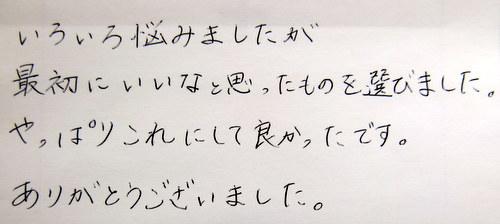 いろいろ悩みましたが
最初にいいなと思ったものを選びました。
やっぱりこれにして良かったです。
ありがとうございました。